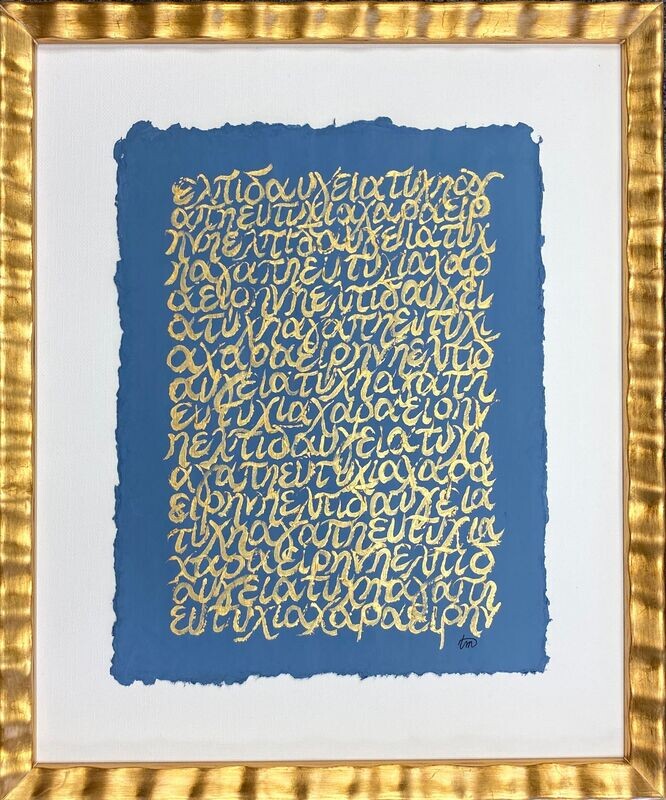 ελπιδαυγειατυχηαγ
απηευτυχιαχαραειρ
ηνηελπιδαυγειατυχ
ηαγαπηευτυχιαχαρ
αειρηνηελπιδαυγει
ατυχηαγαπηευτυχι
αχαραειρηνηελπιδ
αυγειατυχηαγαπη
ευτυχιαχαραειρην
ηελπιδαυγειατυχη
αγαπηευτυχιαχαρα
ειρηνηελπιδαυγεια
τυχηαγαπηευτυχια
χαραειρηνηελπιδ
αυγειατυχηαγαπη
ευτυχιαχαραειρην
tm